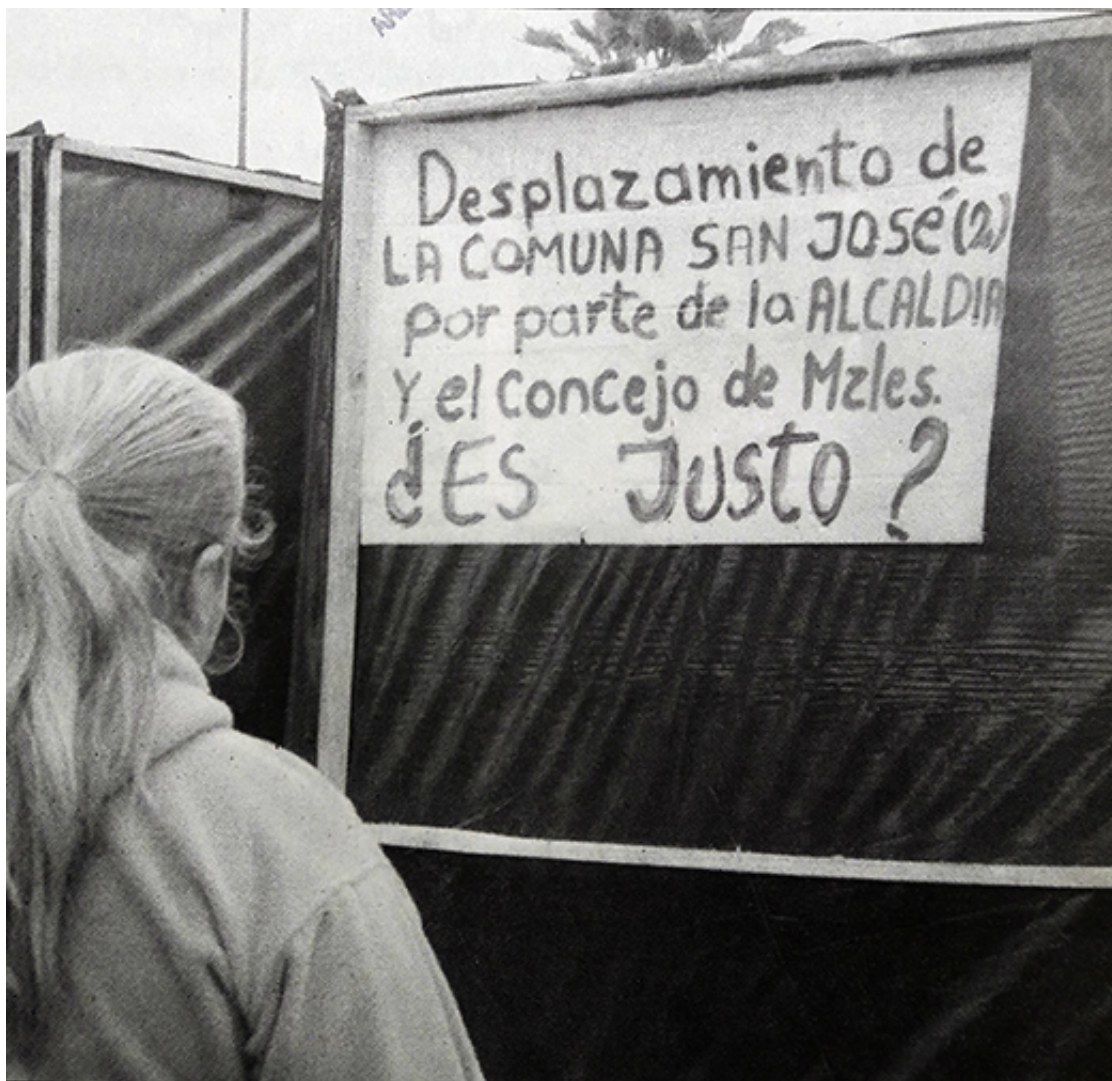 Desplazamiento de
LA COMUNA SAN JOSé (2)
por parte de la ALCALDIA
Y el Concejo de Mzles.
¿ES JUSTO?